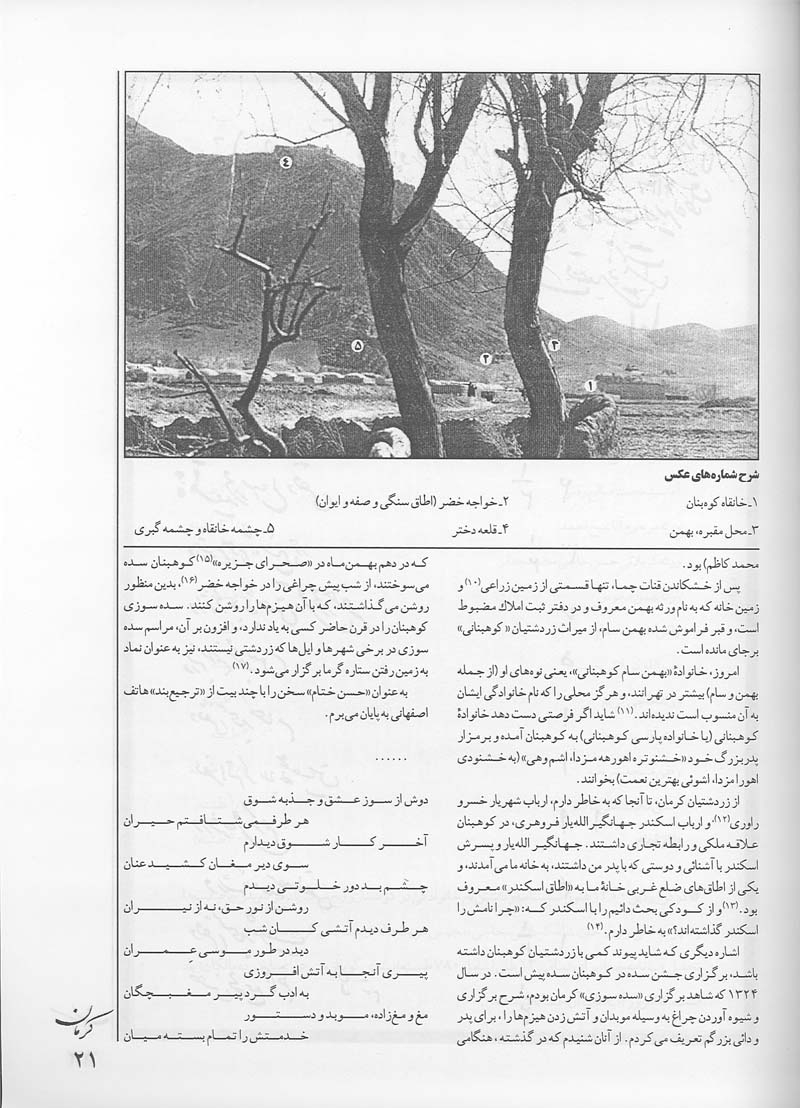 ٤
٥
٢
٣
١
شرح شماره‌های عکس
١ـ خانقاه کوه‌بنان
٢ـ خواجه خضر (اطاق سنگی و صفه و ایوان)
٣ـ محل مقبره، بهمن
۴ـ قلعه دختر
۵ـ چشمه خانقاه و چشمه گبری
محمد کاظم) بود.
پس از خشکاندن قنات چما، تنها قسمتی از زمین زراعی(١٠) و
زمین خانه که به نام ورثه بهمن معروف و در دفتر ثبت املاک مضبوط
است، و قبر فراموش شده بهمن سام، از میراث زردشتیان « کوهبنانی»
برجای مانده است.
امروز، خانوادهٔ «بهمن سام کوهبنانی»، یعنی نوه‌های او (از جمله
بهمن و سام) بیشتر در تهرانند، و هرگز محلی را که نام خانوادگی ایشان
به آن منسوب است ندیده‌اند.(١١) شاید اگر فرصتی دست دهد خانوادهٔ
کوهبنانی (یا خانواده پارسی کوهبنانی) به کوهبنان آمده و بر مزار
پدربزرگ خود «خشنوتره اهورهه مزدا، اشم وهی» (به خشنودی
اهورا مزدا، اشوئی بهترین نعمت) بخوانند.
از زردشتیان کرمان، تا آنجا که به خاطر دارم، ارباب شهریار خسرو
راوری(١٢) و ارباب اسکندر جهانگیر الله‌یار فروهری، در کوهبنان
علاقه ملکی و رابطه تجاری داشتند. جهانگیر الله‌یار و پسرش
اسکندر با آشنائی و دوستی که با پدر من داشتند، به خانه ما می‌آمدند، و
یکی از اطاق‌های ضلع غربی خانهٔ ما به «اطاق اسکندر» معروف
بود.(١٣) و از کودکی بحث دائیم را با اسکندر که: «چرا نامش را
اسکندر گذاشته‌اند؟» به خاطر دارم.(١۴)
اشاره دیگری که شاید پیوند کمی با زردشتیان کوهبنان داشته
باشد، برگزاری جشن سده در کوهبنان سده پیش است. در سال
١٣٢۴ که شاهد برگزاری «سده سوزی» کرمان بودم، شرح برگزاری
و شیوه آوردن چراغ به وسیله موبدان و آتش زدن هیزم‌ها را، برای پدر
و دائی بزرگم تعریف می‌کردم. از آنان شنیدم که در گذشته، هنگامی
که در دهم بهمن‌ماه در «صحرای جزیره»(١۵) کوهبنان سده
می‌سوختند، از شب پیش چراغی را در خواجه خضر(١۶)، بدین منظور
روشن می‌گذاشتند، که با آن هیزم‌ها را روشن کنند. سده سوزی
کوهبنان را در قرن حاضر کسی به یاد ندارد، و افزون بر آن، مراسم سده
سوزی در برخی شهرها و ایل‌ها که زردشتی نیستند، نیز به عنوان نماد
به زمین رفتن ستاره گرما برگزار می‌شود.(١٧)
به عنوان «حسن ختام» سخن را با چند بیت از «ترجیع‌بند» هاتف
اصفهانی به پایان می‌برم.
......
دوش از سوز عشق و جذبه شوق
هر طرف می‌شتافتم حیران
آخر کار شوق دیدارم
سوی دیر مغان کشید عنان
چشم بد دور خلوتی دیدم
روشن از نور حق، نه از نیران
هر طرف دیدم آتشی کان شب
دید در طور موسی عمران
پیری آنجا به آتش افروزی
به ادب گرد پیر مغبچگان
مغ و مغ‌زاده، موبد و دستور
خدمتش را تمام بسته میان
کرمان
٢١